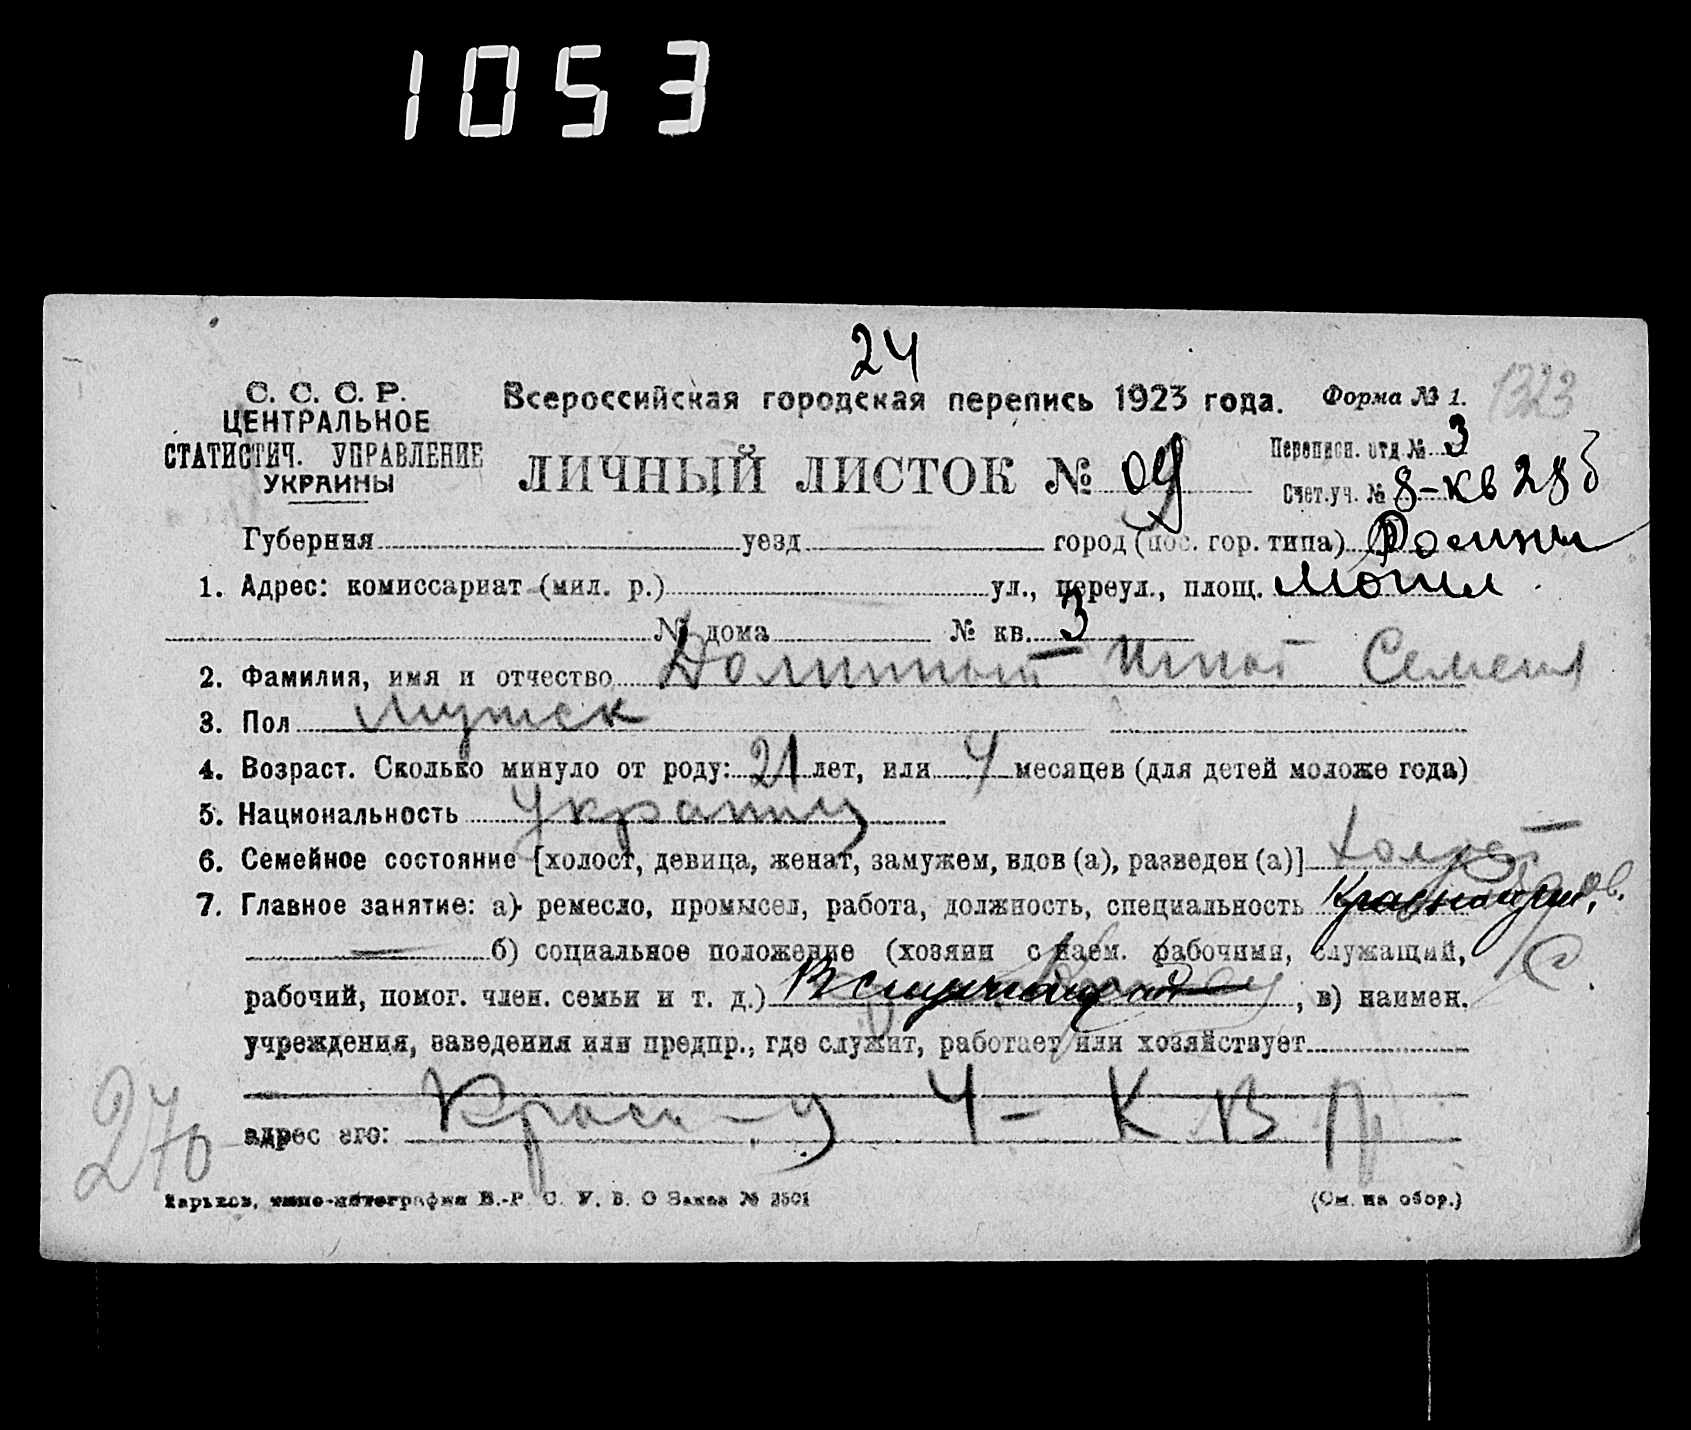 1053
24
С. С. С. Р.
ЦЕНТРАЛЬНОЕ
СТАТИСТИЧ. УПРАВЛЕНИЕ
УКРАИНЫ
Всероссийская городская перепись 1923 года. Форма № 1. 1323
ЛИЧНЫЙ ЛИСТОК №
Переписн. отд. № 3
Счет. уч. № 8-кв 28б
Губерния уезд город (пос. гор. типа) Ромны
1. Адрес: комиссариат (мил. р.) ул., переул., площ.
№ дома № кв. 3
2. Фамилия, имя и отчество Семен
3. Пол Мужск
4. Возраст. Сколько минуло от роду: 21 лет, или 4 месяцев (для детей моложе года)
5. Национальность Украинец
6. Семейное состояние [холост, девица, женат, замужем, вдов (а), разведен (а)] Холост
7. Главное занятие: а) ремесло, промысел, работа, должность, специальность
б) социальное положение (хозяин с наем. рабочими, служащий,
рабочий, помог. член. семьи и т. д.) , в) наимен.
учреждения, заведения или предпр., где служит, работает или хозяйствует
адрес его: 4 - К В П
270
Харьков, типо-литография В.-Р. С. У. В. О Заказ № 3501 (См. на обор.)